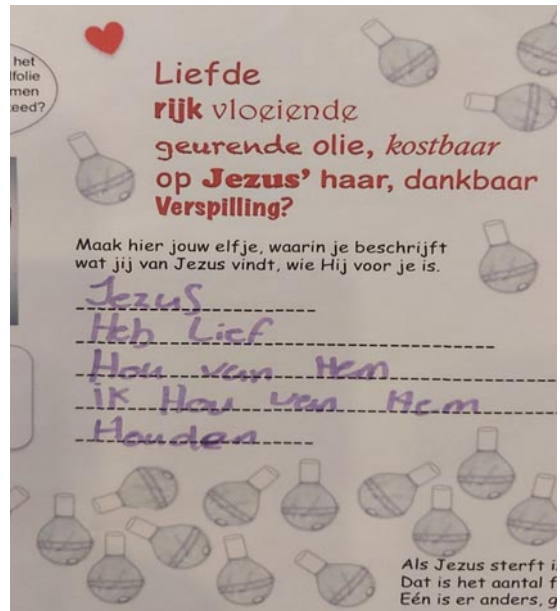 het
folie
men
eed?
Liefde
rijk vloeiende
geurende olie, kostbaar
op Jezus' haar, dankbaar
Verspilling?
Maak hier jouw elfje, waarin je beschrijft
wat jij van Jezus vindt, wie Hij voor je is.
Jezus
Heb Lief
Hou van Hem
ik Hou van Hem
Houden
Als Jezus sterft i
Dat is het aantal f
Eén is er anders, g